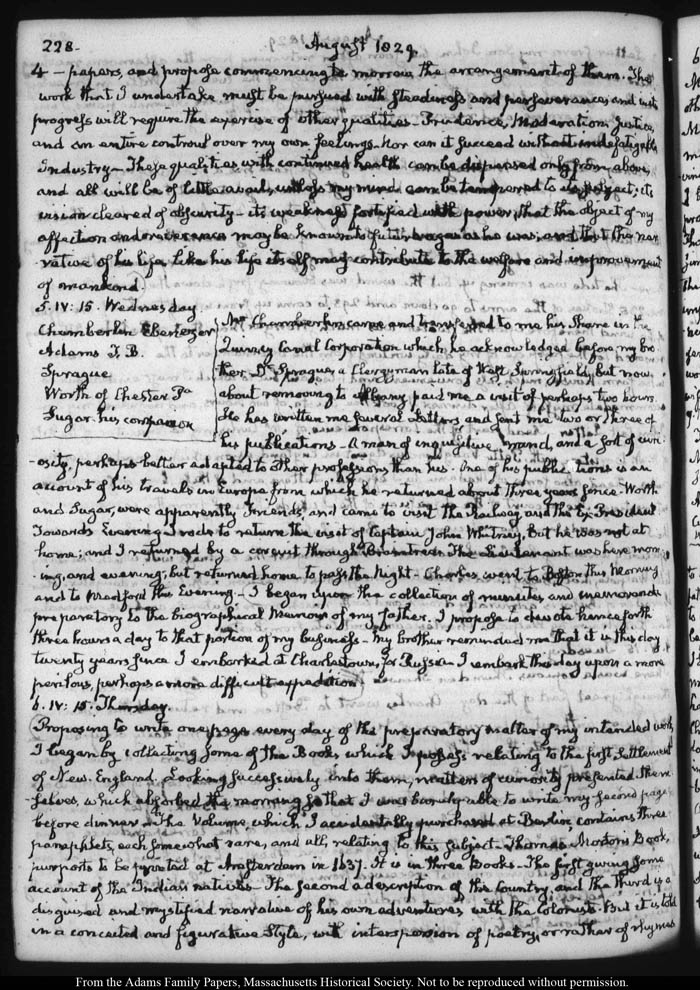 228.
August 1829.
4 – papers, and propose commencing to morrow the arrangement of them. The
work that I undertake must be pursued with steadiness and perseverance, and its
progress will require the exercise of other qualities – Prudence, Moderation, Justice,
and an entire controul over my own feelings. Nor can it succeed without indefatigable
Industry – These qualities with continued health can be dispensed only from above,
and all will be of little avail, unless my mind can be tempered to its object; its
vision cleared of obscurity – its weakness fortified with power, that the object of my
affection and reverence may be known to future ages as he was; and that the nar-
rative of his life, like his life itself may contribute to the welfare and improvement
of mankind.
5. IV: 15. Wednesday
Chamberlin Ebenezer
Adams T. B.
Sprague
Worth of Chester Pa
Sugar his companion
Mr Chamberlin came and transferred to me his Share in the
Quincy Canal Corporation which he acknowledged before my bro-
ther. Dr Sprague, a Clergyman late of West Springfield, but now
about removing to Albany, paid me a visit of perhaps two hours.
He has written me several Letters and sent me two or three of
his publications – A man of inquisitive mind, and a sort of curi-
osity, perhaps better adapted to other professions than his. One of his publications is an
account of his travels in Europe from which he returned about three years since. Worth
and Sugar, were apparently Friends, and came to visit the Railway, and the Ex-President
Towards Evening I rode to return the visit of Captain John Whitney, but he was not at
home; and I returned by a circuit through Braintree. The Lieutenant was here morn-
ing, and evening; but returned home to pass the Night – Charles went to Boston this Morning
and to Medford this Evening. – I began upon the collection of minutes and memoranda
preparatory to the biographical Memoir of my father. I propose to devote henceforth
three hours a day to that portion of my business – My brother reminded me that it is this day
twenty years since I embarked at Charlestown, for Russia – I embark this day upon a more
perilous, perhaps a more difficult expedition
6. IV: 15. Thursday.
Proposing to write one page every day of the preparatory matter of my intended work,
I began by collecting some of the Books which I possess relating to the first Settlement
of New-England. Looking successively into them, matters of curiosity presented them-
selves, which absorbed the morning so that I was barely able to write my second page
before dinner – The Volume which I accidentally purchased at Berlin, contains three
pamphlets, each somewhat rare, and all, relating to this subject – Thomas Morton's Book,
purports to be printed at Amsterdam in 1637. It is in three Books – The first giving some
account of the Indian natives – The second a description of the Country, and the third is a
disguised and mystified narrative of his own adventures with the Colonists. But it is told
in a conceited and figurative Style, with interspersion of poetry, or rather of rhymes
From the Adams Family Papers, Massachusetts Historical Society. Not to be reproduced without permission.